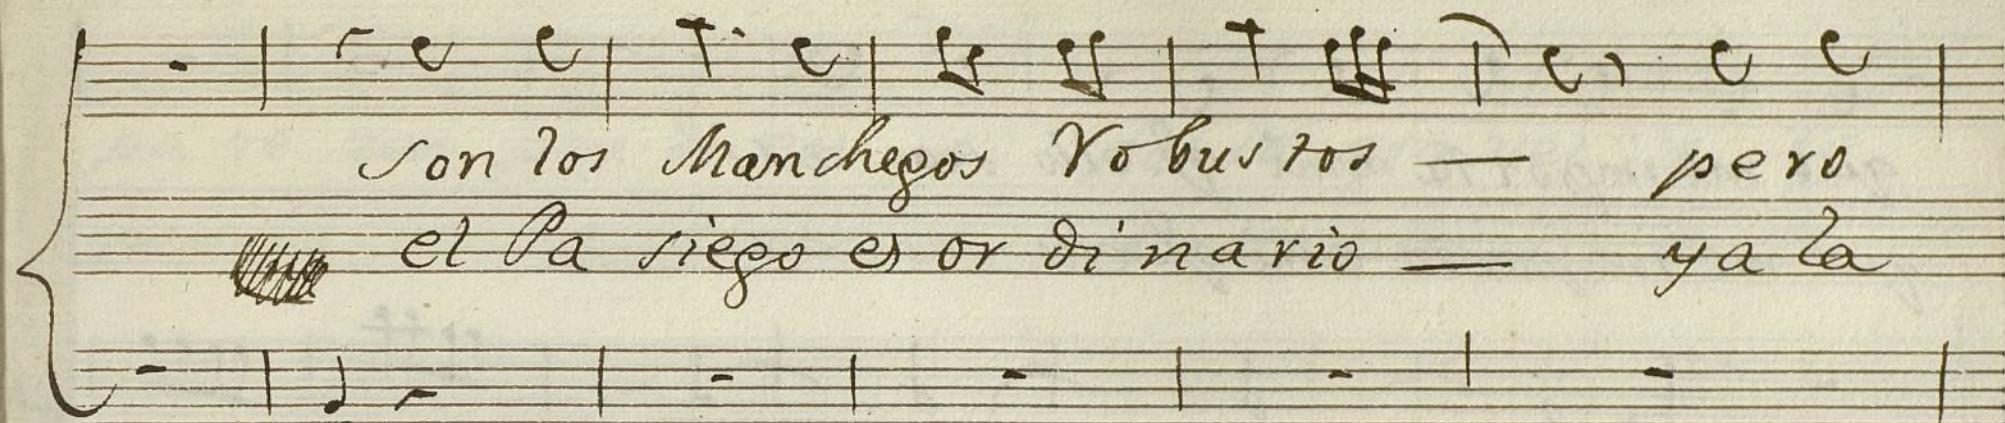 son los Manchegos Robustos — pero
el Pasiego es ordinario — ya la